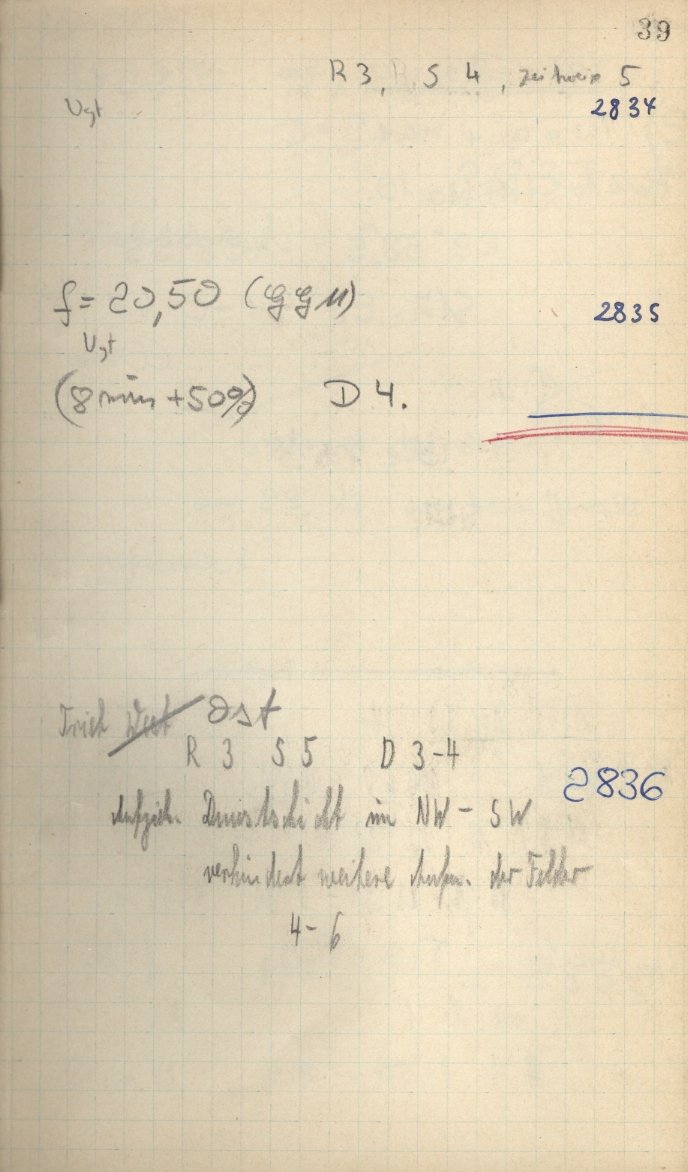 39
R 3, S 4, zeitweise 5
2834
Vgt
f = 20,50 (GG 11)
2835
Vgt
(8 min + 50%) D 4.
Trieb West Ost
R 3 S 5 D 3-4
2836
Aufzieh. Dunstschicht im NW - SW
verhindert weitere Aufn. der Felder
4-6